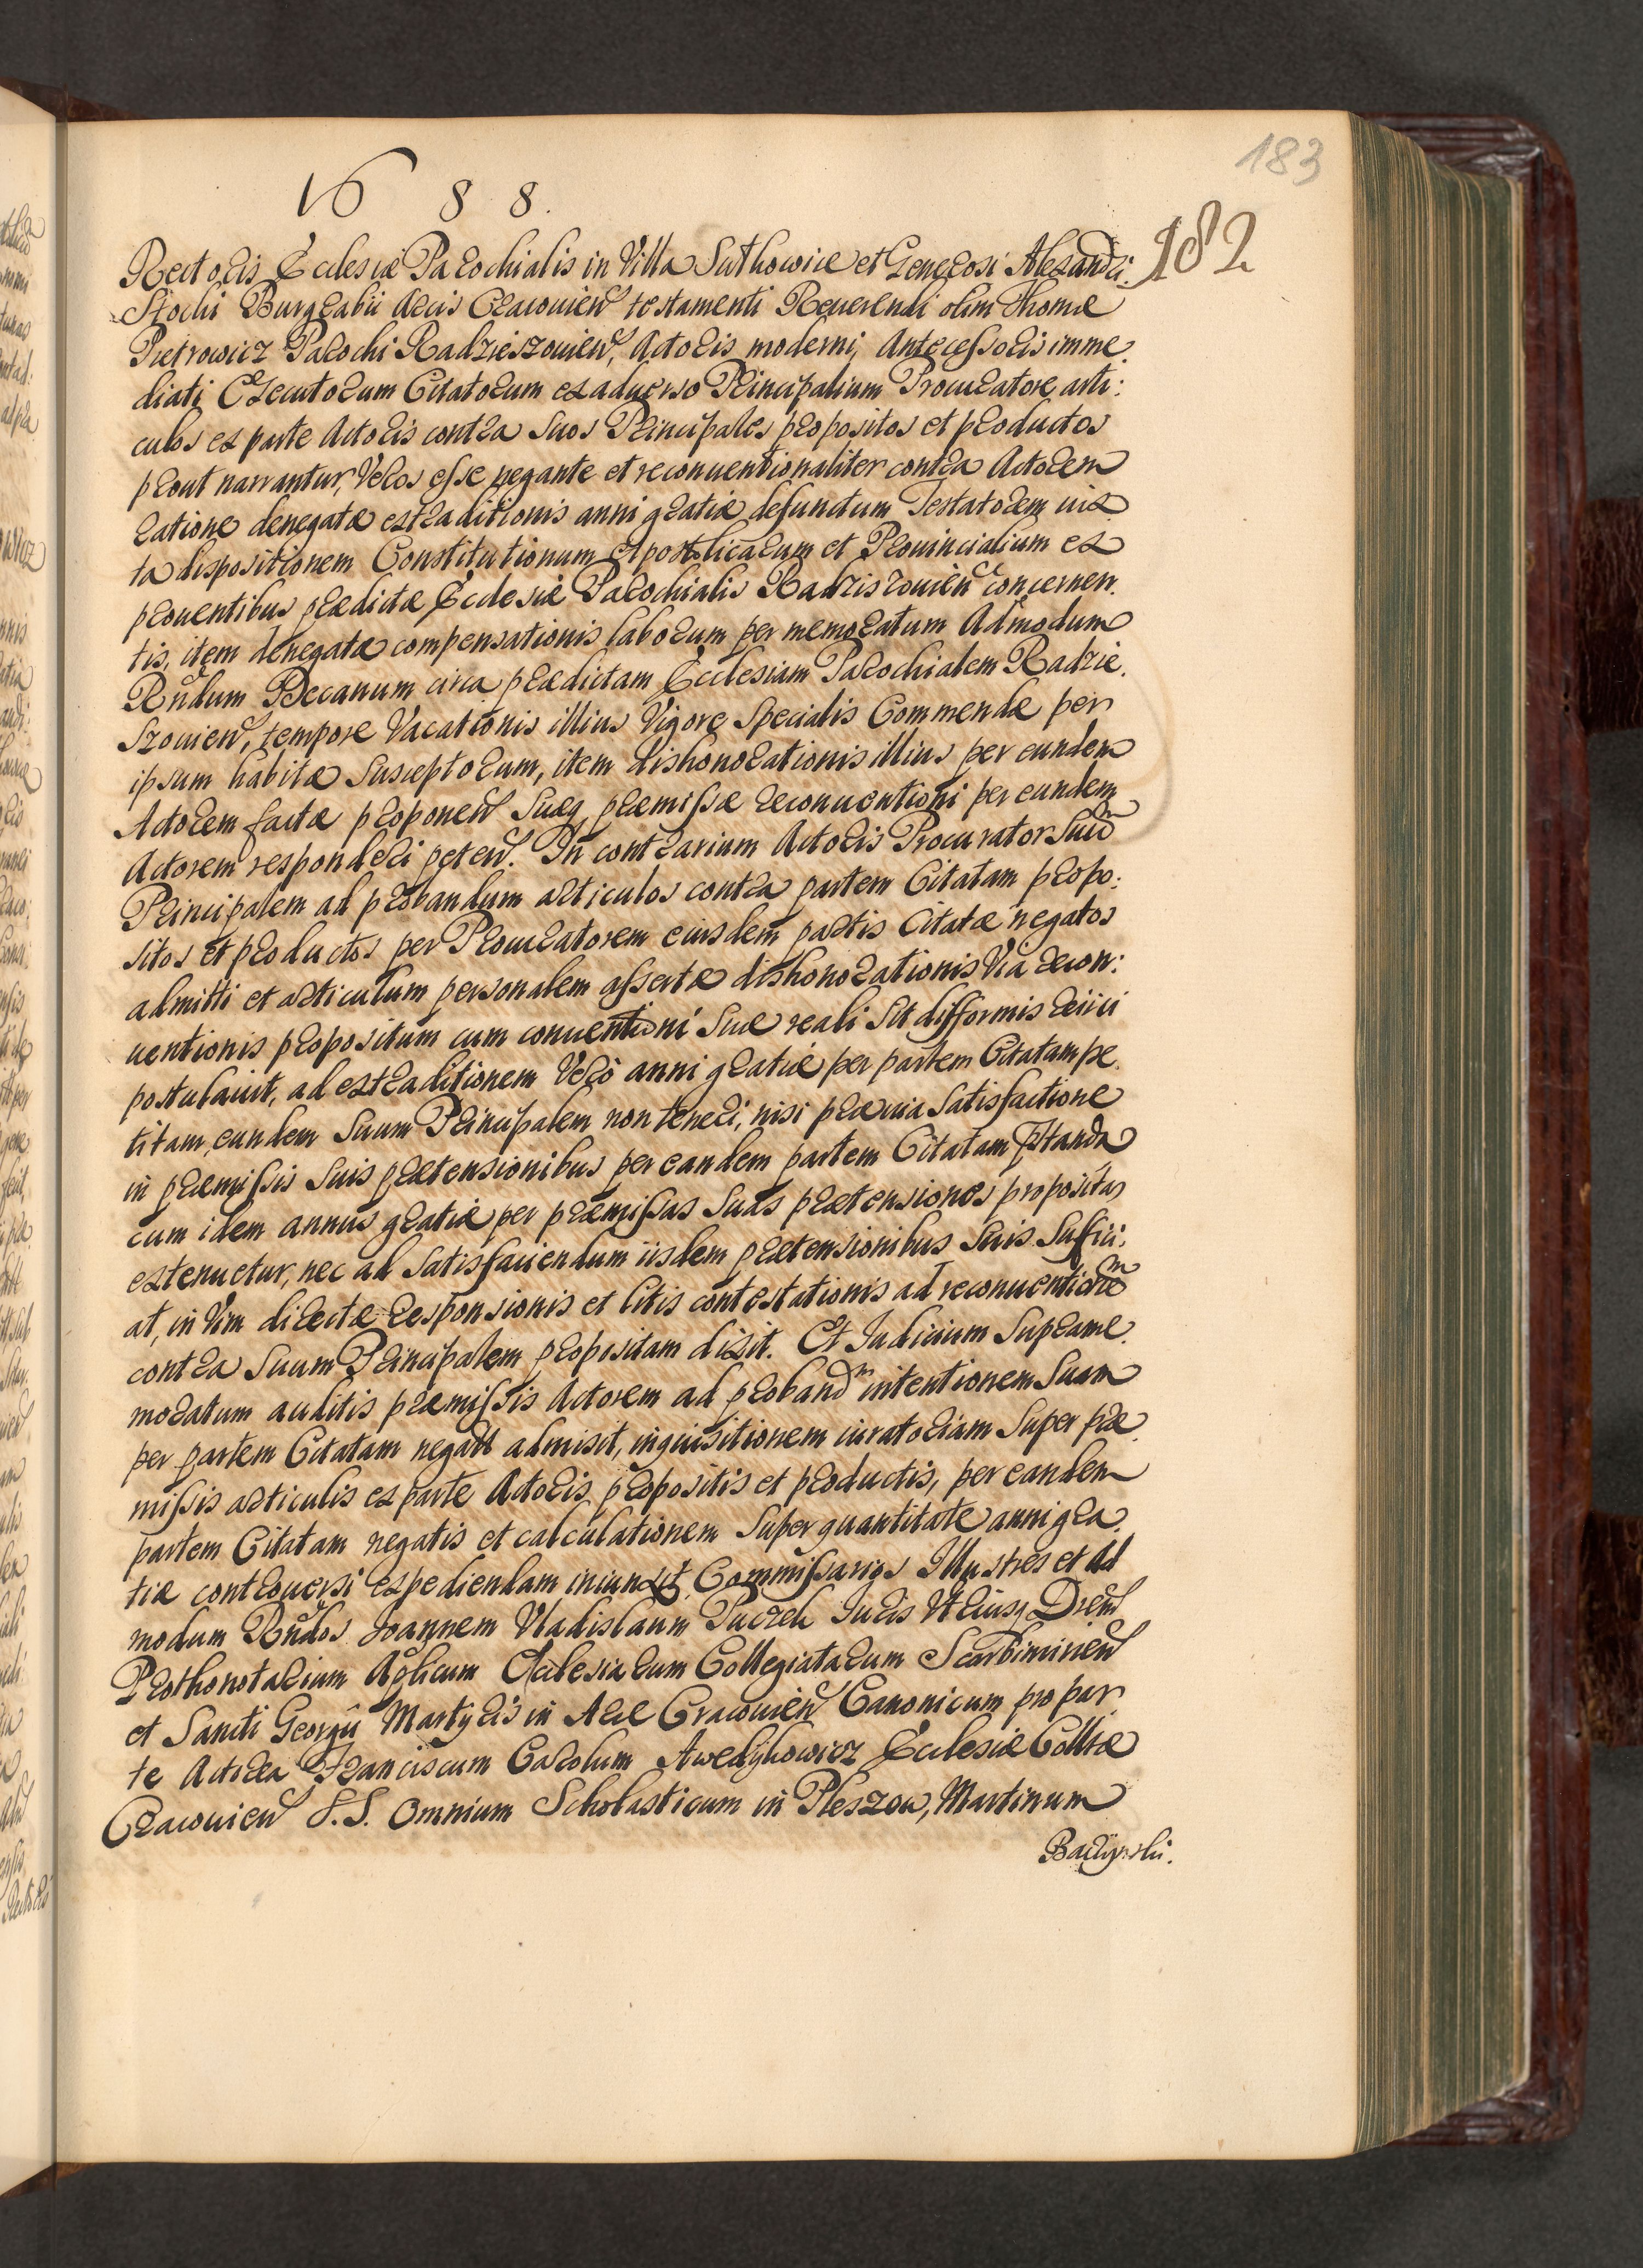 183
1688.
182
Rectoris Ecclesiæ Parochialis in Villa Sułkowice et Generosi Alexandri
Stocki Burgrabii Arcis Cracovien̄ testamenti Reuerendi olim Thomæ
Pietrowicz Parochi Radzieszouien̄, Actoris moderni, Antecessoris imme
diati Executorum Citatorum ex aduerso Principalium Procuratore arti:
culos ex parte Actoris contra Suos Principales propositos et productos
prout narrantur, Veros esse negante et reconuentionaliter contra Actorem
ratione denegatæ extraditionis anni gratiæ defunctum Testatorem iux
ta dispositionem Constitutionum Apostolicarum et Prouincialium ex
prouentibus prædictæ Ecclesiæ Parochialis Radziszouien̄ concernen
tis, item denegatæ compensationis laborum per memoratum Admodum
Rn̄dum Decanum circa prædictam Ecclesiam Parochialem Radzie
szouien̄, tempore Vacationis illius Vigore Specialis Commendæ per
ipsum habitæ Susceptorum, item dishonorationis illius per eundem
Actorem factæ proponen̄ Suæq præmissæ reconuentioni per eundem
Actorem responderi peten̄. In contrarium Actoris Procurator Suum
Principalem ad probandum articulos contra partem Citatam propo:
sitos et productos per Procuratorem eiusdem partis Citatæ negatos
admitti et articulum personalem assertæ dishonorationis Via recon:
uentionis propositum cum conuentioni Suæ reali sit difformis reiici
postulauit, ad extraditionem Verò anni gratiæ per partem Citatam pe
titam, eundem Suum Principalem non teneri, nisi præuia Satisfactione
in præmissis Suis prætensionibus per eandem partem Citatam præstanda
cum idem annus gratiæ per præmissas Suas prætensiones propositas
extenuetur, nec ad Satisfaciendum iisdem prætensionibus Suis Suffici:
at, in Vim directæ responsionis et litis contestationis ad reconuentionem
contra Suum Principalem propositam dixit. Et Iudicium Suprame
moratum auditis præmissis Actorem ad proband̄ intentionem Suam
per partem Citatam negatā admisit, inquisitionem iuratoriam Super præ
missis articulis ex parte Actoris propositis et productis, per eandem
partem Citatam negatis et calculationem Super quantitate anni gra
tiæ controuersi expediendam iniunxit, Commissarios Illustres et Ad
modum Rn̄dos Joannem Vladislaum Puczek Juris Vtriusq Dren̄
Prothonotarium Aplicum Ecclesiarum Collegiatarum Scarbimirien̄
et Sancti Georgii Martyris in Arce Cracouien̄ Canonicum pro par
te Actorea Franciscum Carolum Awedykowicz Ecclesiæ Colltæ
Cracouien̄ S.S. Omnium Scholasticum in Pleszow, Martinum